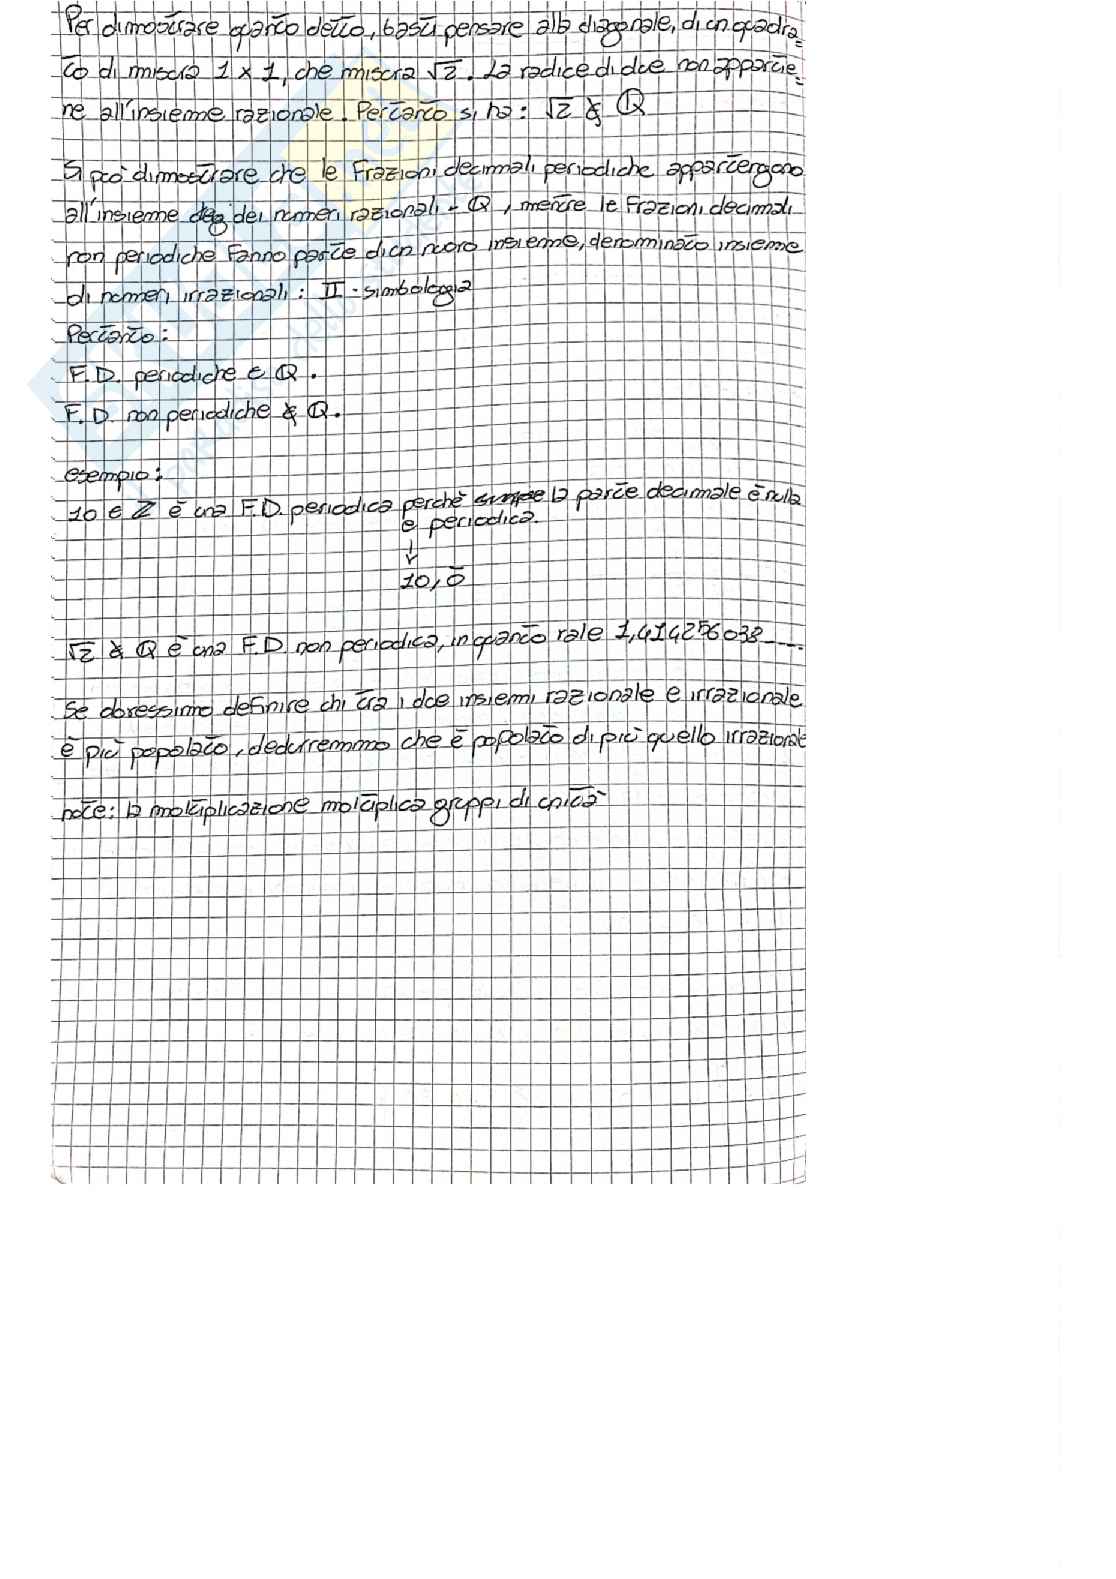 Per dimostrare quanto detto, basti pensare alla diagonale, di un quadra=
to di misura 1 x 1, che misura √2. La radice di due non appartie=
ne all'insieme razionale. Pertanto si ha: √2 ∉ Q
Si può dimostrare che le Frazioni decimali periodiche appartengono
all'insieme deg dei numeri razionali - Q, mentre le Frazioni decimali
non periodiche Fanno parte di un nuovo insieme, denominato insieme
di numeri irrazionali: II - simbologia
Pertanto:
F.D. periodiche ∈ Q.
F.D. non periodiche ∉ Q.
esempio:
10 ∈ Z è una F.D. periodica perchè la parte decimale è nulla
e periodica.
↓
10,0̅
√2 ∉ Q è una F.D non periodica, in quanto vale 1,414256038....
Se dovessimo definire chi tra i due insiemi razionale e irrazionale
è più popolato, dedurremmo che è popolato di più quello irrazionale
note: la moltiplicazione moltiplica gruppi di unità